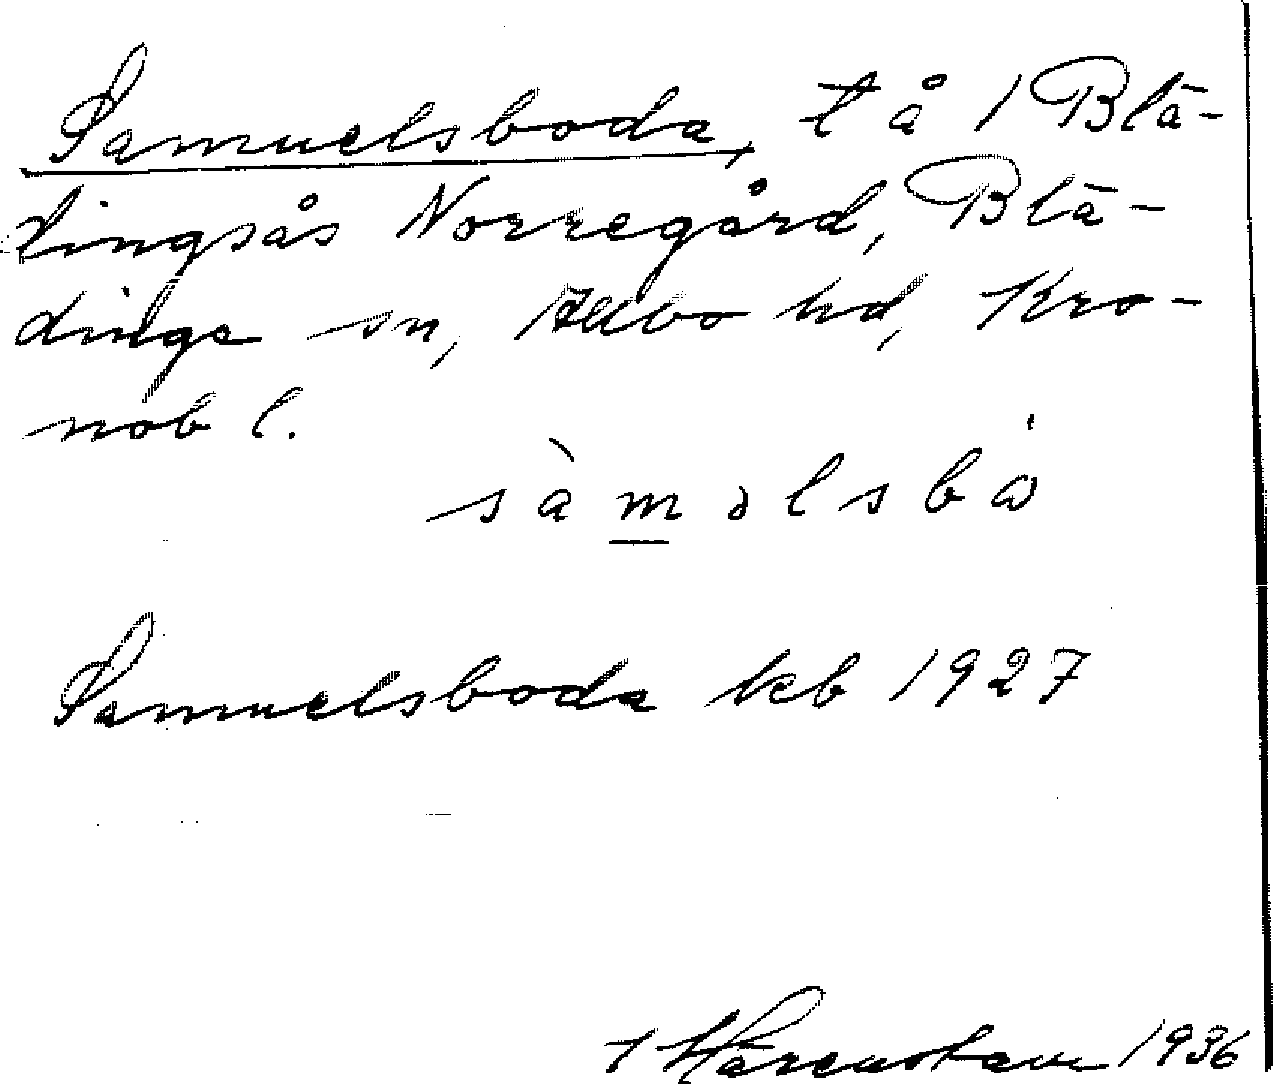 Samuelsboda, t å 1 Blä-
dingsås Norregård, Blä-
dinge sn, Allbo hd, Kro-
nob l.
sàməlsbꞷ̀
Samuelsboda kb 1927
Härenstam 1936